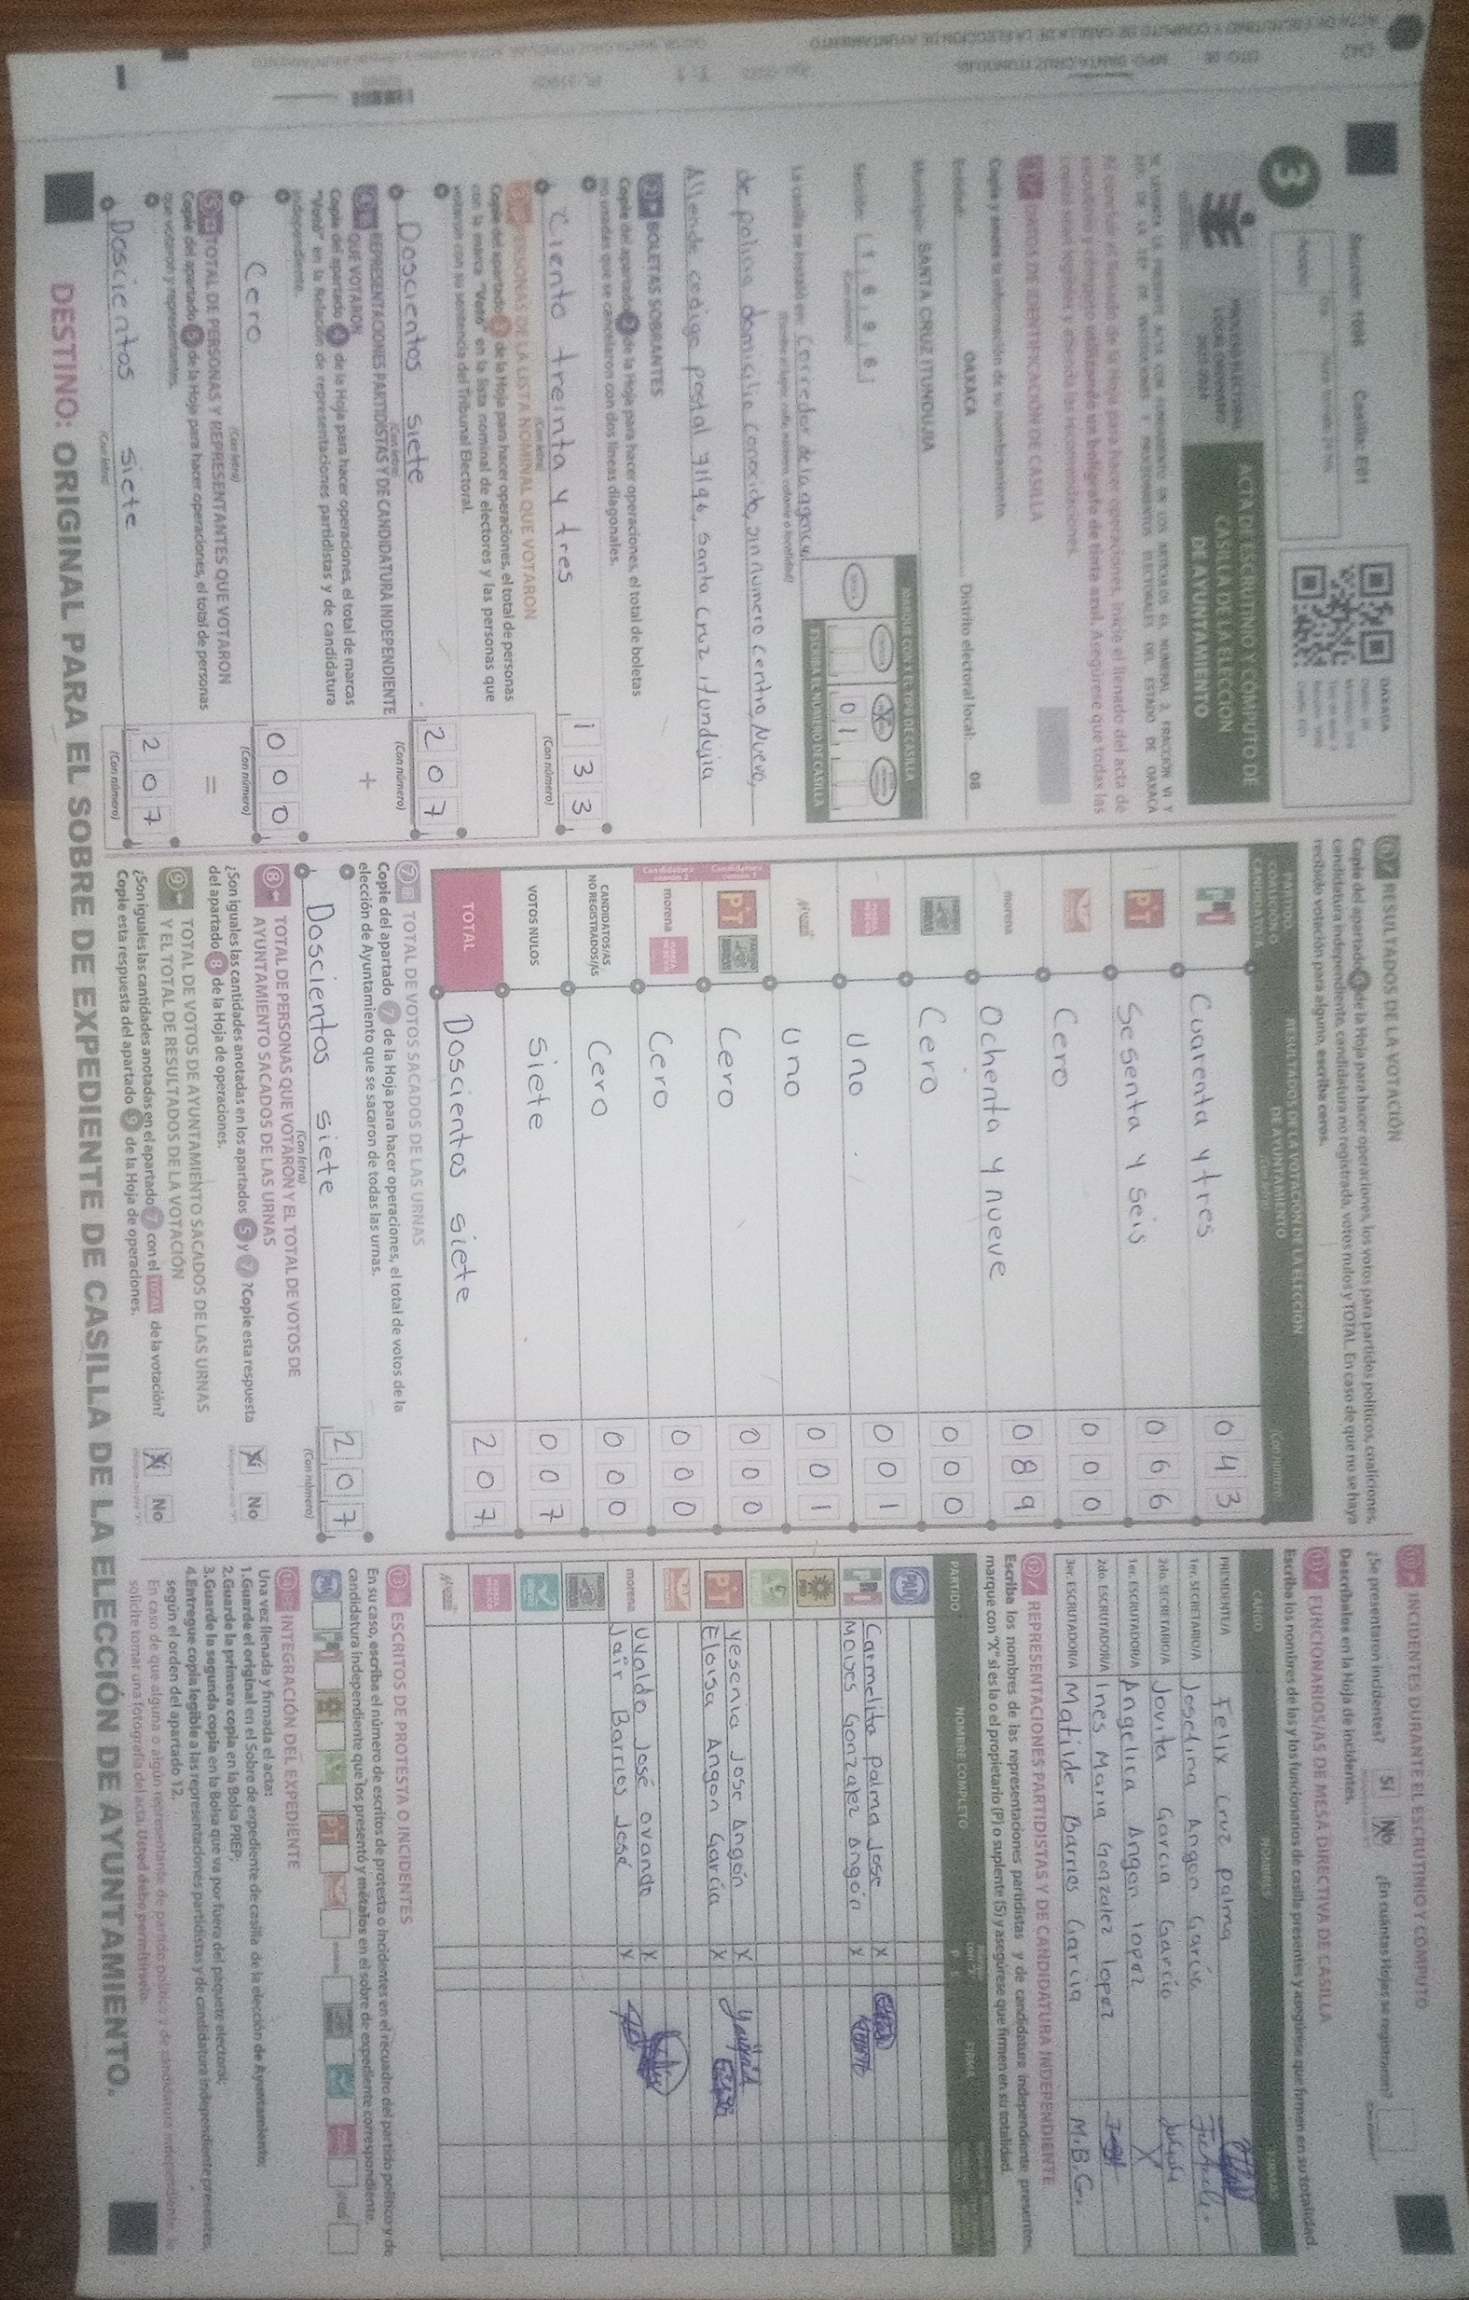 Sección: 1696 Casilla: E01
OAXACA
3
ACTA DE ESCRUTINIO Y CÓMPUTO DE
CASILLA DE LA ELECCIÓN
DE AYUNTAMIENTO
Copie y anote la información de su nombramiento.
OAXACA Distrito electoral local: 08
SANTA CRUZ ITUNDUJIA
Sección: 1 6 9 6
MARQUE CON X EL TIPO DE CASILLA
ESCRIBA EL NÚMERO DE CASILLA
0 1
La casilla se instaló en: Corredor de la agencia
de policia domicilio conocido, sin numero centro, Nuevo,
Allende codigo postal 71196, santa cruz itundujia
2 BOLETAS SOBRANTES
Copie del apartado 2 de la Hoja para hacer operaciones, el total de boletas
no usadas que se cancelaron con dos líneas diagonales.
Ciento treinta y tres 1 3 3
(Con letra) (Con número)
PERSONAS DE LA LISTA NOMINAL QUE VOTARON
Copie del apartado 3 de la Hoja para hacer operaciones, el total de personas
con la marca "Votó" en la lista nominal de electores y las personas que
votaron con su sentencia del Tribunal Electoral.
Doscientos siete 2 0 7
(Con letra) (Con número)
REPRESENTACIONES PARTIDISTAS Y DE CANDIDATURA INDEPENDIENTE
QUE VOTARON +
Copie del apartado 4 de la Hoja para hacer operaciones, el total de marcas
"Votó" en la Relación de representaciones partidistas y de candidatura
independiente.
Cero 0 0 0
(Con letra) (Con número)
5 TOTAL DE PERSONAS Y REPRESENTANTES QUE VOTARON =
Copie del apartado 5 de la Hoja para hacer operaciones, el total de personas
que votaron y representantes.
Doscientos siete 2 0 7
(Con letra) (Con número)
6 RESULTADOS DE LA VOTACIÓN
Copie del apartado 6 de la Hoja para hacer operaciones, los votos para partidos políticos, coaliciones,
candidatura independiente, candidatura no registrada, votos nulos y TOTAL. En caso de que no se haya
recibido votación para alguno, escriba ceros.
RESULTADOS DE LA VOTACIÓN DE LA ELECCIÓN
DE AYUNTAMIENTO
Cuarenta y tres 0 4 3
PT Sesenta y seis 0 6 6
Cero 0 0 0
morena Ochenta y nueve 0 8 9
Cero 0 0 0
Uno 0 0 1
Uno 0 0 1
PT Cero 0 0 0
morena Cero 0 0 0
CANDIDATOS/AS
NO REGISTRADOS/AS Cero 0 0 0
VOTOS NULOS Siete 0 0 7
TOTAL Doscientos siete 2 0 7
7 TOTAL DE VOTOS SACADOS DE LAS URNAS
Copie del apartado 7 de la Hoja para hacer operaciones, el total de votos de la
elección de Ayuntamiento que se sacaron de todas las urnas.
Doscientos siete 2 0 7
(Con letra) (Con número)
8 TOTAL DE PERSONAS QUE VOTARON Y EL TOTAL DE VOTOS DE
AYUNTAMIENTO SACADOS DE LAS URNAS
¿Son iguales las cantidades anotadas en los apartados 5 y 7 ? Copie esta respuesta
del apartado 8 de la Hoja de operaciones. Sí No
9 TOTAL DE VOTOS DE AYUNTAMIENTO SACADOS DE LAS URNAS
Y EL TOTAL DE RESULTADOS DE LA VOTACIÓN
¿Son iguales las cantidades anotadas en el apartado 7 con el TOTAL de la votación?
Copie esta respuesta del apartado 9 de la Hoja de operaciones. Sí No
10 INCIDENTES DURANTE EL ESCRUTINIO Y CÓMPUTO
¿Se presentaron incidentes? Sí No ¿En cuántas Hojas se registraron?
Descríbalos en la Hoja de Incidentes.
11 FUNCIONARIOS/AS DE MESA DIRECTIVA DE CASILLA
Escriba los nombres de las y los funcionarios de casilla presentes y asegúrese que firmen en su totalidad.
CARGO NOMBRES
PRESIDENTE/A Felix cruz palma
1er. SECRETARIO/A Joselina Angon García
2do. SECRETARIO/A Jovita Garcia Garcia
1er. ESCRUTADOR/A Angelica Angon lopez X
2do. ESCRUTADOR/A Ines Maria Gonzalez lopez
3er. ESCRUTADOR/A Matilde Barrios Garcia M.B.G.
12 REPRESENTACIONES PARTIDISTAS Y DE CANDIDATURA INDEPENDIENTE
Escriba los nombres de las representaciones partidistas y de candidatura independiente presentes,
marque con "X" si es la o el propietario (P) o suplente (S) y asegúrese que firmen en su totalidad.
PARTIDO NOMBRE COMPLETO FIRMA
PAN
Carmelita palma Jose X
Moises Gonzalez Angón X
Yesenia Jose Angón X
PT Eloisa Angon García X
Uvaldo José ovando X
morena Jaír Barrios José X
13 ESCRITOS DE PROTESTA O INCIDENTES
En su caso, escriba el número de escritos de protesta o incidentes en el recuadro del partido político y de
candidatura independiente que los presentó y métalos en el sobre de expediente correspondiente.
INTEGRACIÓN DEL EXPEDIENTE
Una vez llenada y firmada el acta:
1. Guarde el original en el Sobre de expediente de casilla de la elección de Ayuntamiento;
2. Guarde la primera copia en la Bolsa PREP;
3. Guarde la segunda copia en la Bolsa que va por fuera del paquete electoral;
4. Entregue copia legible a las representaciones partidistas y de candidatura independiente presentes,
según el orden del apartado 12.
En caso de que alguna o algún representante de partido político y de candidatura independiente, le
solicite tomar una fotografía del acta, Usted debe permitírselo.
DESTINO: ORIGINAL PARA EL SOBRE DE EXPEDIENTE DE CASILLA DE LA ELECCIÓN DE AYUNTAMIENTO.